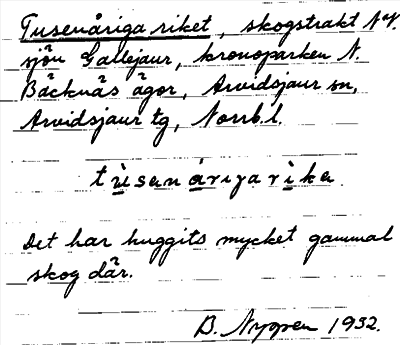 Tusenåriga riket, skogstrakt NV.
sjön Gallejaur, kronoparken N.
Bäcknäs ägor, Arvidsjaur sn,
Arvidsjaur tg, Norrb.l.
tùsenárigarìke
Det har huggits mycket gammal
skog där.
B. Nygren 1932.